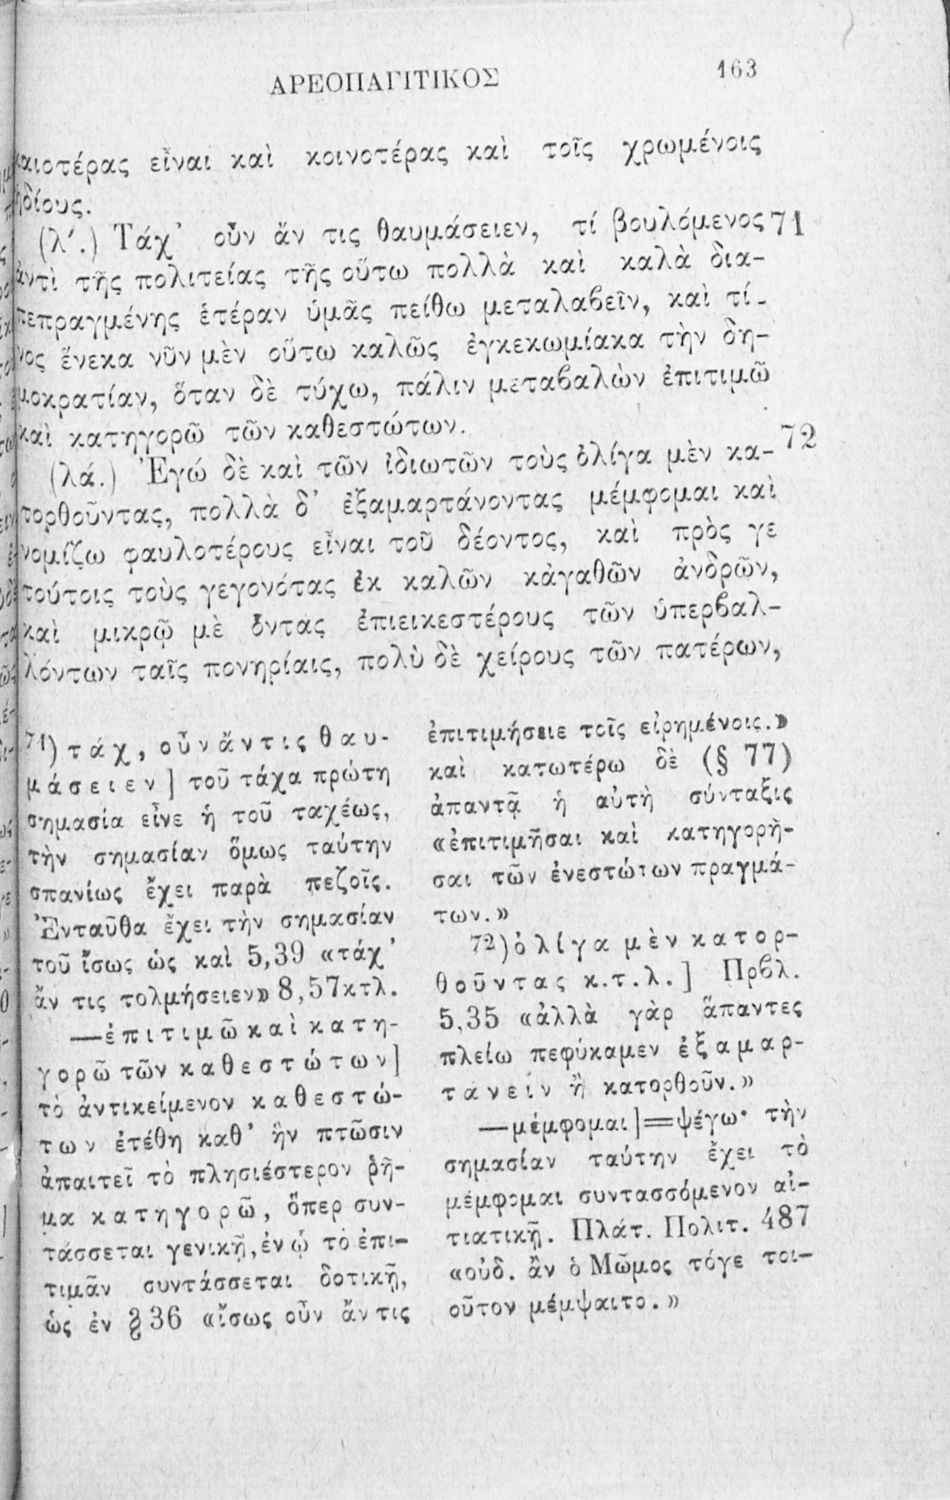 ΑΡΕΟΠΑΓΙΤΙΚΟΣ
163
καιοτέρας εἶναι καὶ κοινοτέρας καὶ τοῖς χρωμένοις
ἡδίους.
(λ΄.) Τάχ᾽ οὖν ἄν τις θαυμάσειεν, τί βουλόμενος 71
ἀντὶ τῆς πολιτείας τῆς οὕτω πολλὰ καὶ καλὰ δια-
πεπραγμένης ἑτέραν ὑμᾶς πείθω μεταλαβεῖν, καὶ τί-
νος ἕνεκα νῦν μὲν οὕτω καλῶς ἐγκεκωμίακα τὴν δη-
μοκρατίαν, ὅταν δὲ τύχω, πάλιν μεταβαλὼν ἐπιτιμῶ
καὶ κατηγορῶ τῶν καθεστώτων.
(λά.) Ἐγώ δὲ καὶ τῶν ἰδιωτῶν τοὺς ὀλίγα μὲν κα- 72
τορθοῦντας, πολλὰ δ᾽ ἐξαμαρτάνοντας μέμφομαι καὶ
νομίζω φαυλοτέρους εἶναι τοῦ δέοντος, καὶ πρὸς γε
τούτοις τοὺς γεγονότας ἐκ καλῶν κἀγαθῶν ἀνδρῶν,
καὶ μικρῷ μὲ ὄντας ἐπιεικεστέρους τῶν ὑπερβαλ-
λόντων ταῖς πονηρίαις, πολὺ δὲ χείρους τῶν πατέρων,
71) τάχ, οὖν ἄν τις θαυ-
μάσειεν] τοῦ τάχα πρώτη
σημασία εἶνε ἡ τοῦ ταχέως,
τὴν σημασίαν ὅμως ταύτην
σπανίως ἔχει παρὰ πεζοῖς.
Ἐνταῦθα ἔχει τὴν σημασίαν
τοῦ ἴσως ὡς καὶ 5,39 «τάχ᾽
ἄν τις τολμήσειεν» 8,57 κτλ.
—ἐπιτιμῶ καὶ κατη-
γορῶ τῶν καθεστώτων]
τὸ ἀντικείμενον καθεστώ-
των ἐτέθη καθ᾽ ἣν πτῶσιν
ἀπαιτεῖ τὸ πλησιέστερον ῥῆ-
μα κατηγορῶ, ὅπερ συν-
τάσσεται γενικῇ, ἐν ᾧ τὸ ἐπι-
τιμᾶν συντάσσεται δοτικῇ,
ὡς ἐν § 36 «ἴσως οὖν ἄν τις
ἐπιτιμήσειε τοῖς εἰρημένοις.»
καὶ κατωτέρω δὲ (§ 77)
ἀπαντᾷ ἡ αὐτὴ σύνταξις
«ἐπιτιμῆσαι καὶ κατηγορῆ-
σαι τῶν ἐνεστώτων πραγμά-
των.»
72) ὀλίγα μὲν κατορ-
θοῦντας κ.τ.λ.] Πρβλ.
5,35 «ἀλλὰ γὰρ ἅπαντες
πλείω πεφύκαμεν ἐξαμαρ-
τάνειν ἢ κατορθοῦν.»
—μέμφομαι]=ψέγω· τὴν
σημασίαν ταύτην ἔχει τὸ
μέμφομαι συντασσόμενον αἰ-
τιατικῇ. Πλάτ. Πολιτ. 487
«οὐδ. ἂν ὁ Μῶμος τόγε τοι-
οῦτον μέμψαιτο.»